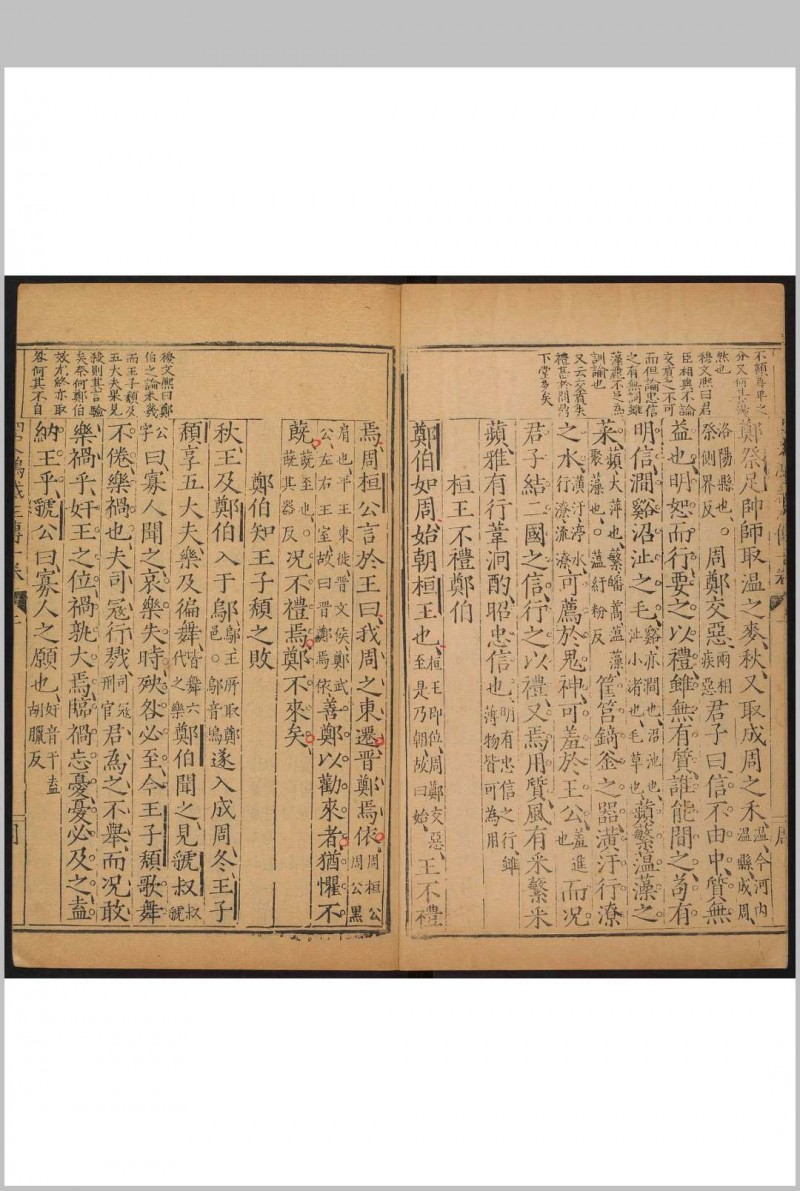 鄭祭足帥師取温之麥秋又取成周之禾温今河内温縣成周
洛陽縣也祭側界反。周鄭交惡兩相疾惡君子曰信不由中質無
益也明恕而行要之以禮雖無有質誰能間之苟有
明信澗谿沼沚之毛谿亦澗也沼池也沚小渚也毛草也蘋蘩薀藻之
菜蘋大萍也蘩皤蒿薀藻聚藻也。薀紆粉反筐筥錡釜之器潢汙行潦
之水潢汙停水行潦流潦可薦於鬼神可羞於王公羞進也而况
君子結二國之信行之以禮又焉用質風有采蘩采
蘋雅有行葦泂酌昭忠信也明有忠信之行雖薄物皆可為用
桓王不禮鄭伯
鄭伯如周始朝桓王也桓王即位周鄭交惡至是乃朝故曰始王不禮
穆文熙曰君
臣相與不論
交質之不可
而但論忠信
之有無詞雖
焉周桓公言於王曰我周之東遷晉鄭焉依周桓公周公黑
肩也平王東徙晉文侯鄭武公左右王室故曰晉鄭焉依善鄭以勸來者猶懼不
蔇蔇至也。蔇其器反况不禮焉鄭不來矣
鄭伯知王子頹之敗
秋王及鄭伯入于鄔鄔王所取鄭邑。鄔音塢遂入成周冬王子
頹享五大夫樂及徧舞皆舞六代之樂鄭伯聞之見虢叔叔虢
公字曰寡人聞之哀樂失時殃咎必至今王子頹歌舞
不倦樂禍也夫司寇行戮司寇刑官君為之不舉而况敢
樂禍乎奸王之位禍孰大焉臨禍忘憂憂必及之盍
納王乎虢公曰寡人之願也奸音干盍胡臘反
穆文熙曰鄭
伯之論未幾
而王子頹及
五大夫果見
殺則其言驗
矣柰何鄭伯
效尤終亦取
咎何其不自